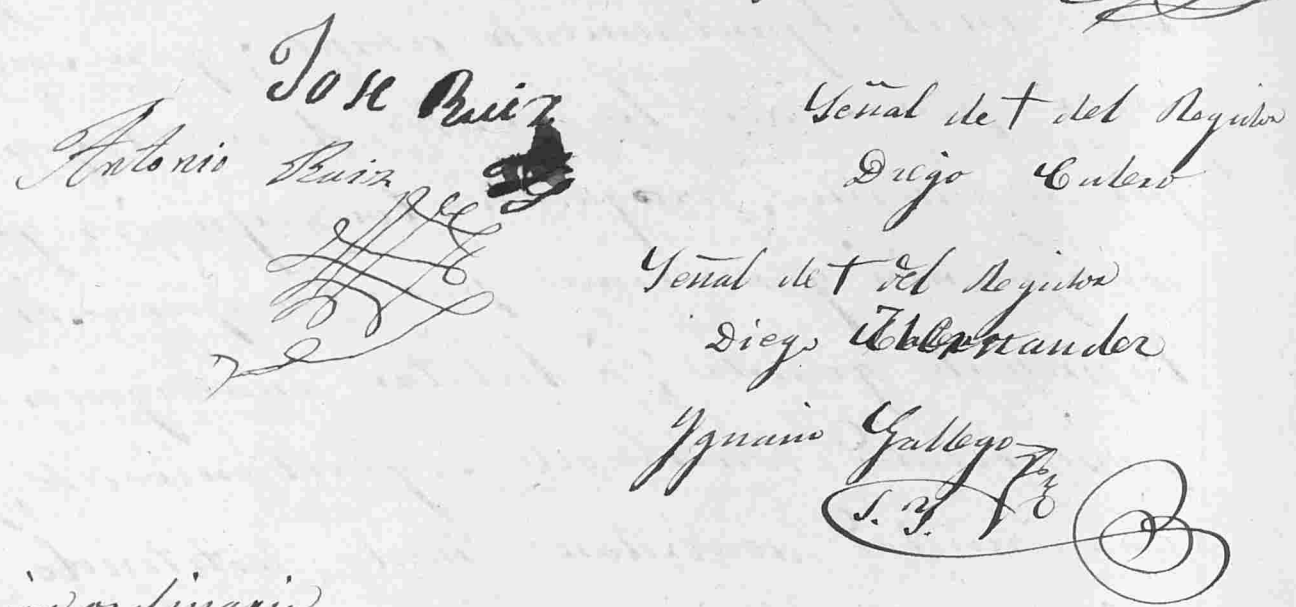 Jose Ruiz
Antonio Ruiz
Señal de † del Regidor
Diego Calero
Señal de † del Regidor
Diego Hernandez
Ygnacio Gallego
S. Y.